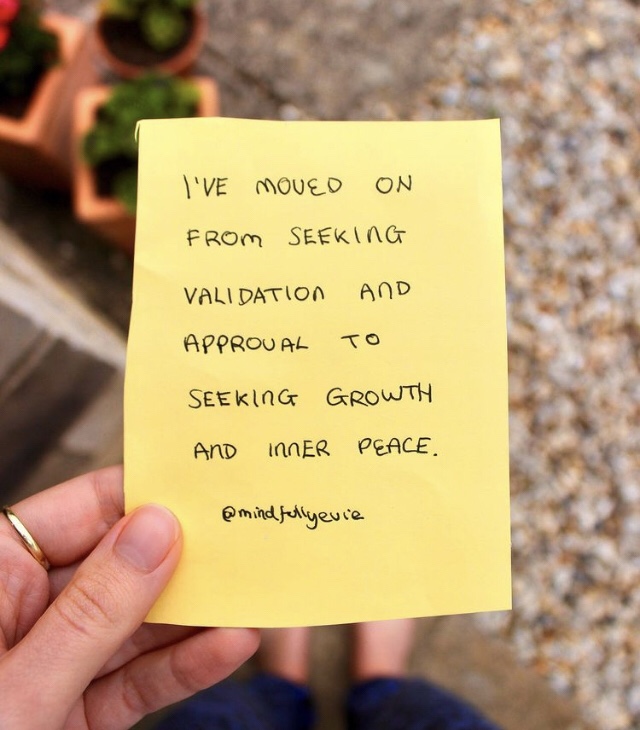 I'VE MOVED ON
FROM SEEKING
VALIDATION AND
APPROVAL TO
SEEKING GROWTH
AND INNER PEACE.
@mindfullyevie